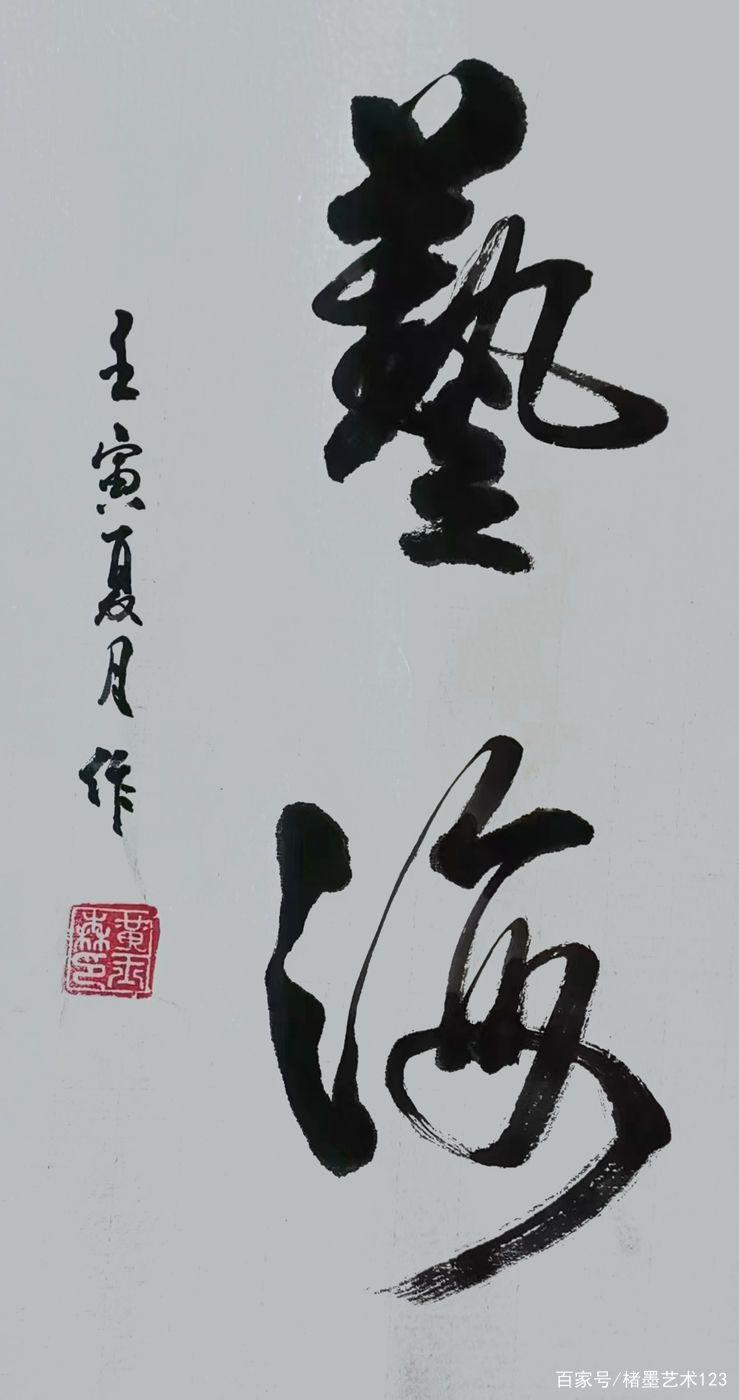 藝海
壬寅夏月作
百家号/楮墨艺术123